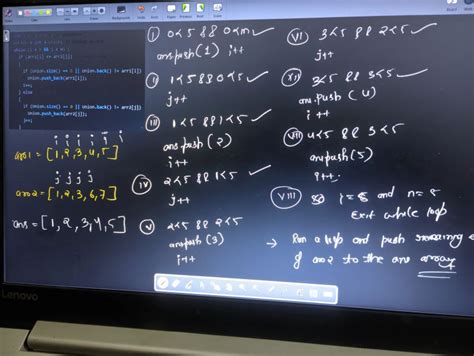 while (i < n && j < m) {
if (arr1[i] <= arr2[j])
{
if (Union.size() == 0 || Union.back() != arr1[i])
Union.push_back(arr1[i]);
i++;
} else
{
if (Union.size() == 0 || Union.back() != arr2[j])
Union.push_back(arr2[j]);
j++;
}
i i i i i i
arr1 = [1,2,3,4,5]
j j j j
arr2 = [1,2,3,6,7]
ans = [1,2,3,4,5]
I 0<5 && 0<m
ans.push(1) i++
1<5 && 0<5
j++
III 1<5 && 1<5
ans.push(2)
i++
IV 2<5 && 1<5
j++
V 2<5 && 2<5
ans.push(3)
i++
VI 3<5 && 2<5
j++
3<5 && 3<5
ans.push(4)
i++
VII 4<5 && 3<5
ans.push(5)
i++
VIII so i=5 and n=5
Exit while loop
→ Run a loop and push remaining
of arr2 to the ans array
Lenovo